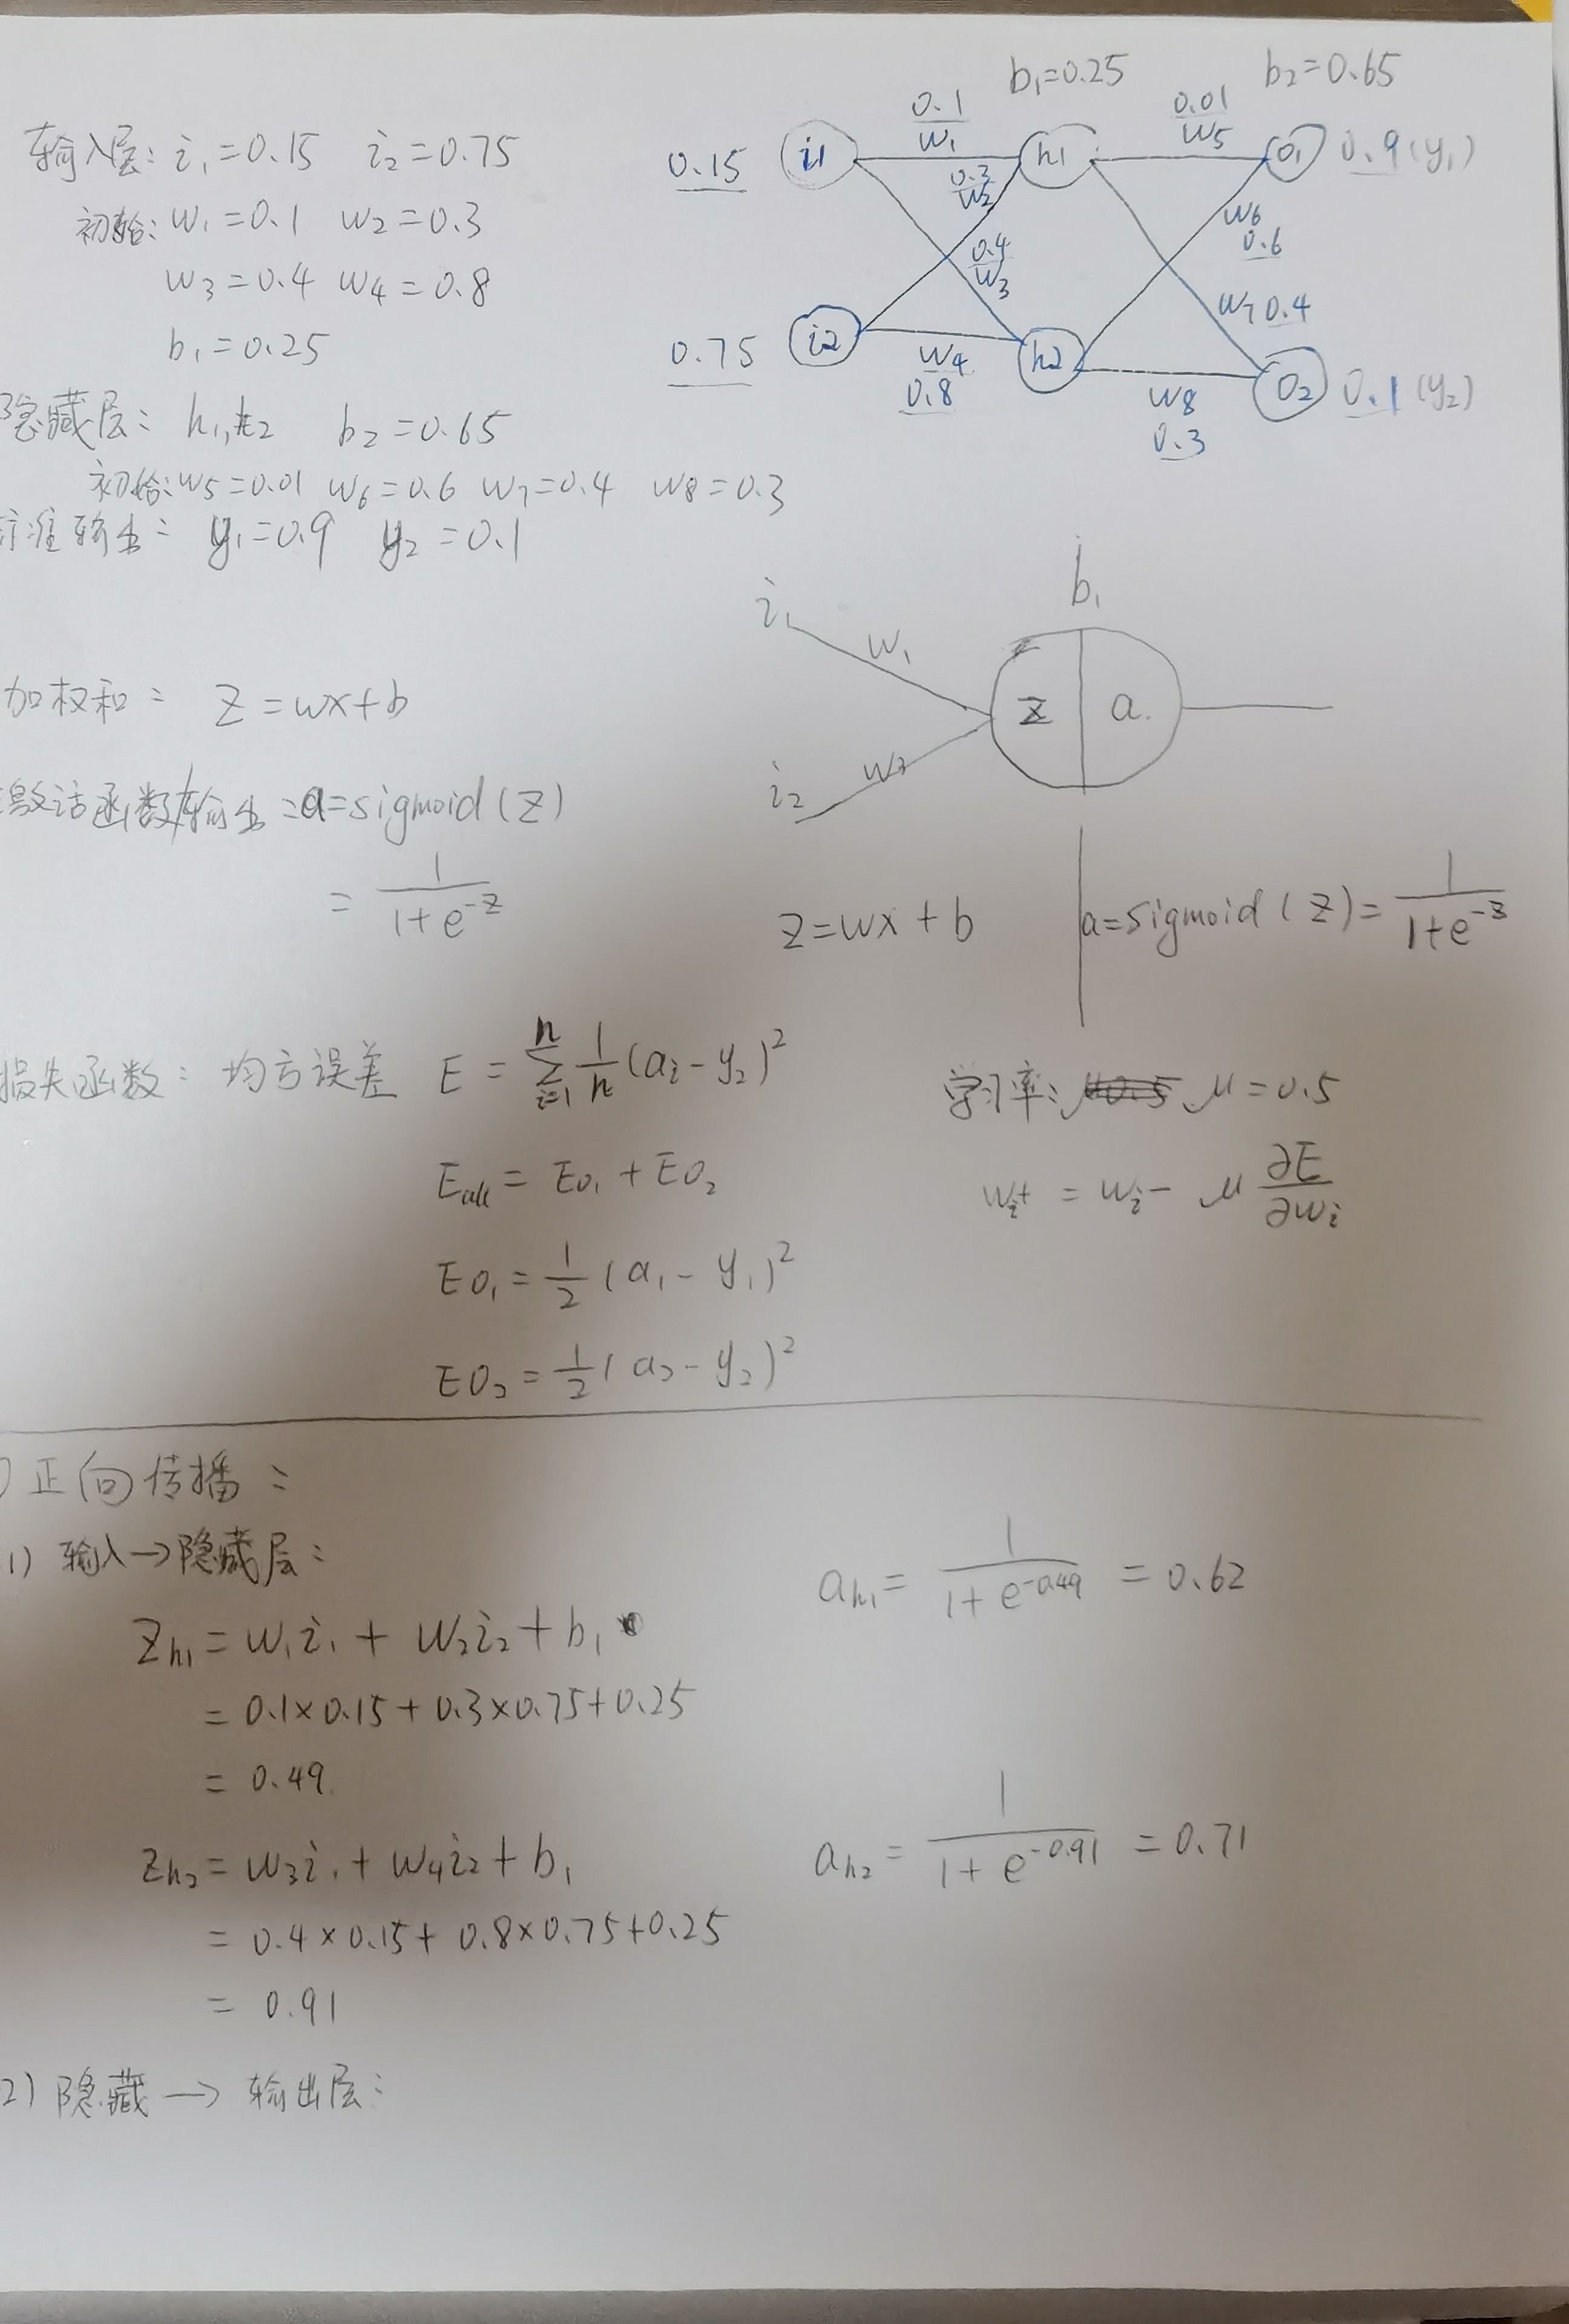 b₁=0.25 b₂=0.65
输入层: i₁=0.15 i₂=0.75
初始: w₁=0.1 w₂=0.3
w₃=0.4 w₄=0.8
b₁=0.25
隐藏层: h₁,h₂ b₂=0.65
初始: w₅=0.01 w₆=0.6 w₇=0.4 w₈=0.3
标准输出: y₁=0.9 y₂=0.1
0.15 i1 0.1 w₁ h1 0.01 w₅ o₁ 0.9(y₁)
0.3 w₂
w₆ 0.6
0.4 w₃
w₇ 0.4
0.75 i2 w₄ 0.8 h2 w8 0.3 o₂ 0.1(y₂)
b₁
i₁ w₁
z a
i₂ w₂
加权和: z=wx+b
激活函数输出: a=sigmoid(z)
= 1/(1+e^-z)
z=wx+b a=sigmoid(z)= 1/(1+e^-z)
损失函数: 均方误差 E = Σ_{i=1}^{n} 1/n (aᵢ-y₂)²
E_all = Eo₁ + Eo₂
Eo₁ = 1/2 (a₁-y₁)²
Eo₂ = 1/2 (a₂-y₂)²
学习率: μ=0.5
wᵢ⁺ = wᵢ - μ ∂E/∂wᵢ
) 正向传播:
1) 输入→隐藏层:
z_h₁ = w₁i₁ + w₂i₂ + b₁
= 0.1×0.15+0.3×0.75+0.25
= 0.49
a_h₁ = 1/(1+e^-0.49) = 0.62
z_h₂ = w₃i₁ + w₄i₂ + b₁
= 0.4×0.15+0.8×0.75+0.25
= 0.91
a_h₂ = 1/(1+e^-0.91) = 0.71
2) 隐藏→输出层: